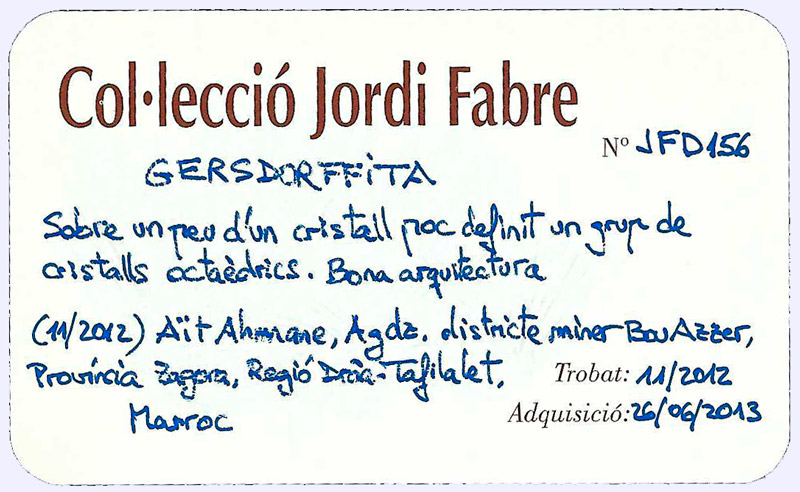 Col·lecció Jordi Fabre
Nº JFD156
GERSDORFFITA
Sobre un peu d'un cristall poc definit un grup de
cristalls octaèdrics. Bona arquitectura
(11/2012) Aït Ahmane, Agdz, districte miner Bou Azzer,
Província Zagora, Regió Drâa-Tafilalet,
Trobat: 11/2012
Marroc
Adquisició: 26/06/2013